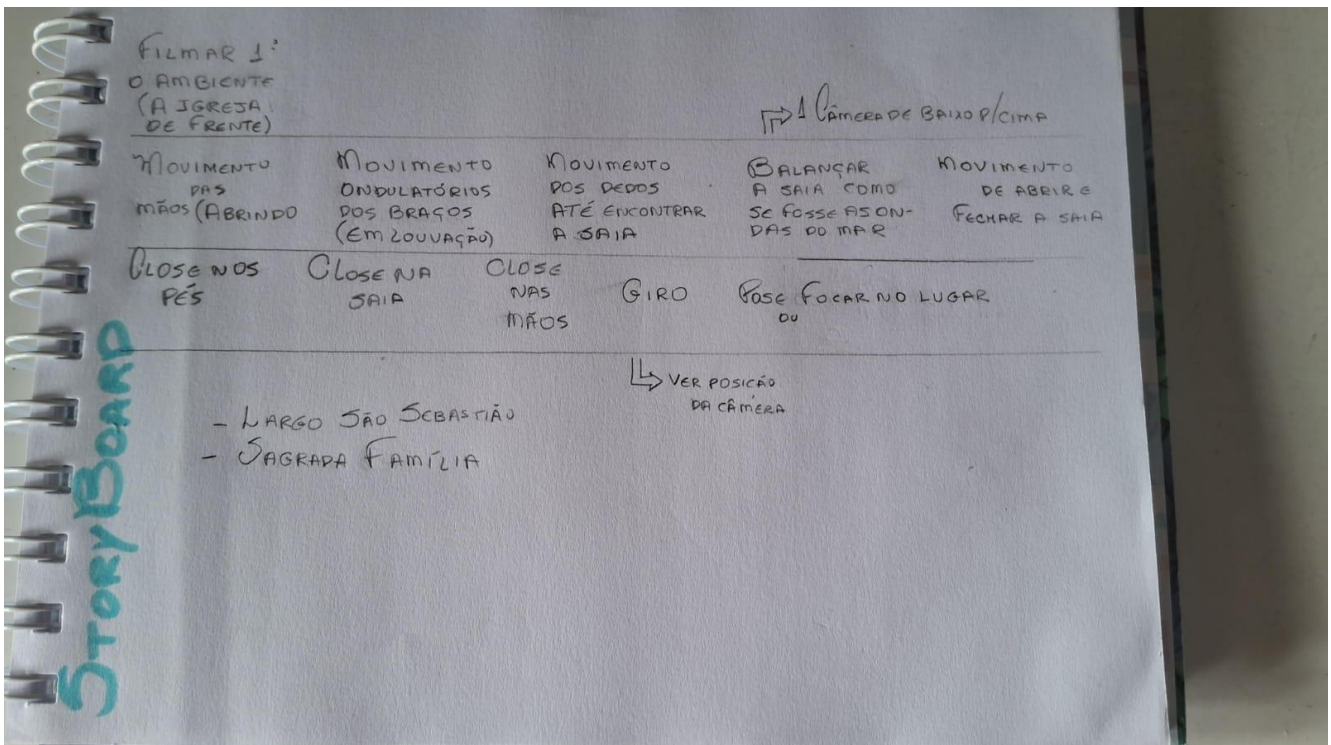 FILMAR 1º
O AMBIENTE
(A IGREJA
DE FRENTE)
1 CÂMERA DE BAIXO P/CIMA
MOVIMENTO
DAS
MÃOS (ABRINDO
MOVIMENTO
ONDULATÓRIOS
DOS BRAÇOS
(EM LOUVAÇÃO)
MOVIMENTO
DOS DEDOS
ATÉ ENCONTRAR
A SAIA
BALANÇAR
A SAIA COMO
SE FOSSE AS ON-
DAS DO MAR
MOVIMENTO
DE ABRIR E
FECHAR A SAIA
CLOSE NOS
PÉS
CLOSE NA
SAIA
CLOSE
NAS
MÃOS
GIRO
POSE FOCAR NO LUGAR
OU
VER POSICÃO
DA CÂMERA
- LARGO SÃO SEBASTIÃO
- SAGRADA FAMÍLIA
STORYBOARD